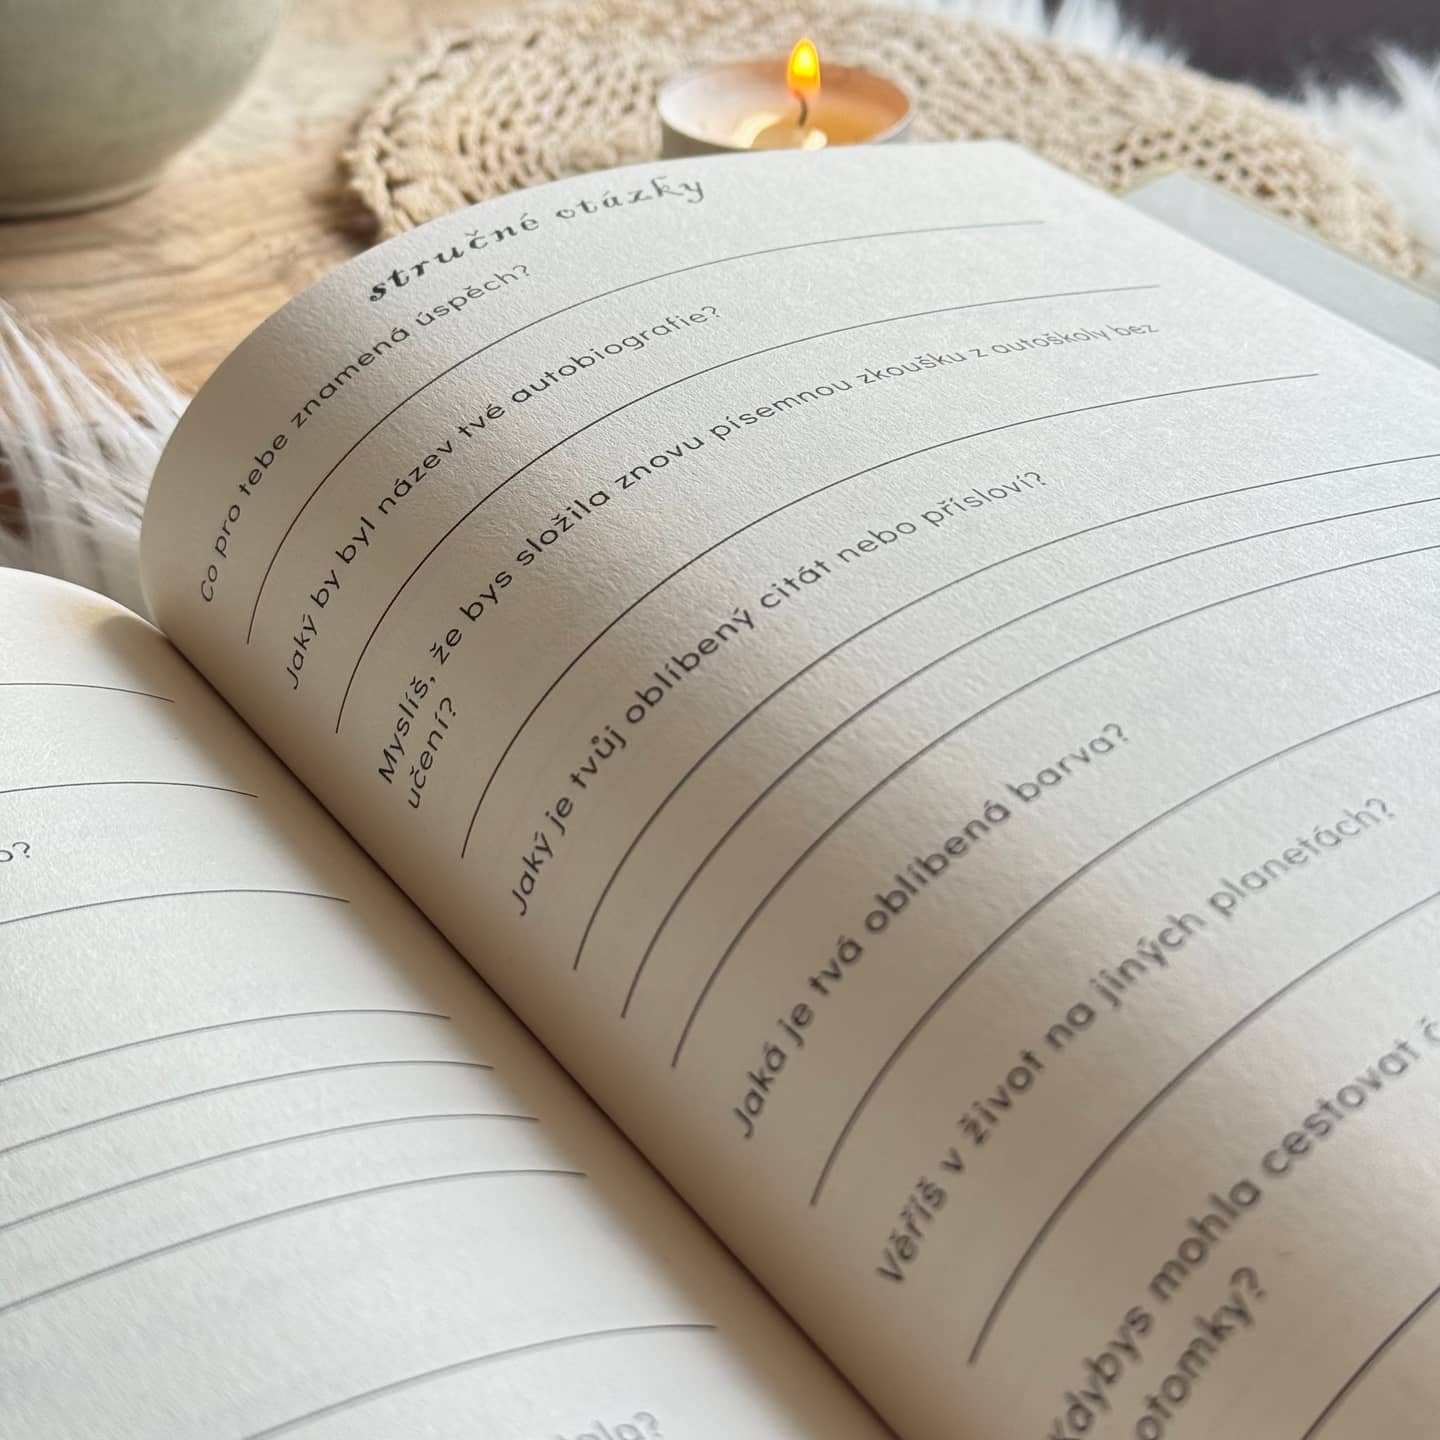 stručné otázky
Co pro tebe znamená úspěch?
Jaký by byl název tvé autobiografie?
Myslíš, že bys složila znovu písemnou zkoušku z autoškoly bez
učení?
Jaký je tvůj oblíbený citát nebo přísloví?
Jaká je tvá oblíbená barva?
Věříš v život na jiných planetách?
Kdybys mohla cestovat